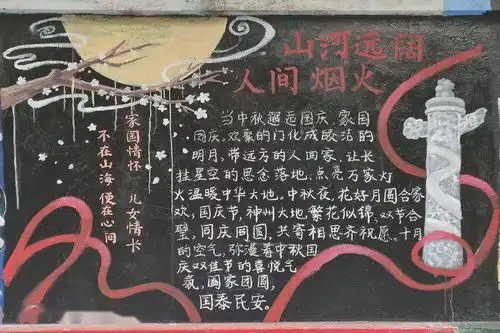 山河远阔
人间 烟火
当中秋邂逅国庆,家国
同庆。欢聚的门化成皎洁的
明月,带远方的人回家,让长
挂星空的思念落地,点亮万家灯
火温暖中华大地。中秋夜,花好月圆合家
欢,国庆节,神州大地繁花似锦。双节合
璧,同庆同圆,共寄相思齐祝愿。十月
的空气,弥漫着中秋国
庆双佳节的喜悦气
氛,阖家团圆,
国泰民安。
家国情怀 儿女情长
不在山海 便在心间